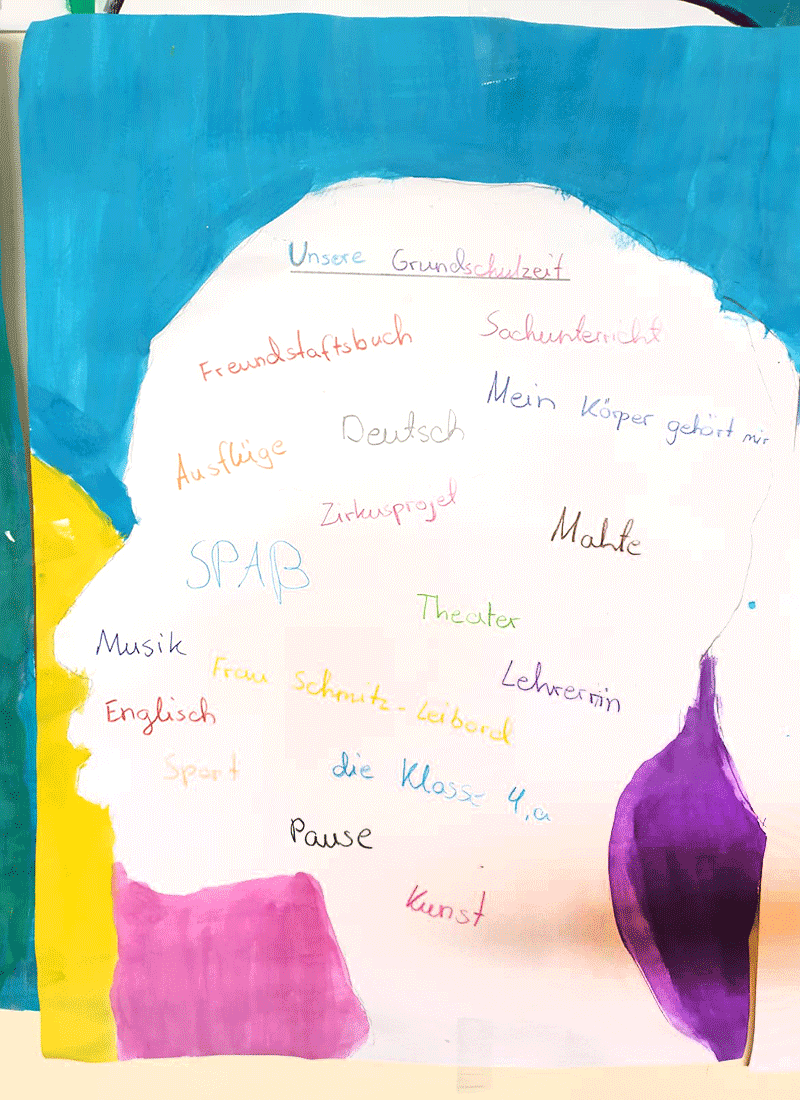 Unsere Grundschulzeit
Freundstaftsbuch
Sachunterricht
Mein Körper gehört mir
Deutsch
Ausflüge
Zirkusprojet
Mahte
SPAß
Theater
Musik
Frau Schmitz-Leibord
Lehrerrin
Englisch
Sport
die Klasse 4.a
Pause
Kunst